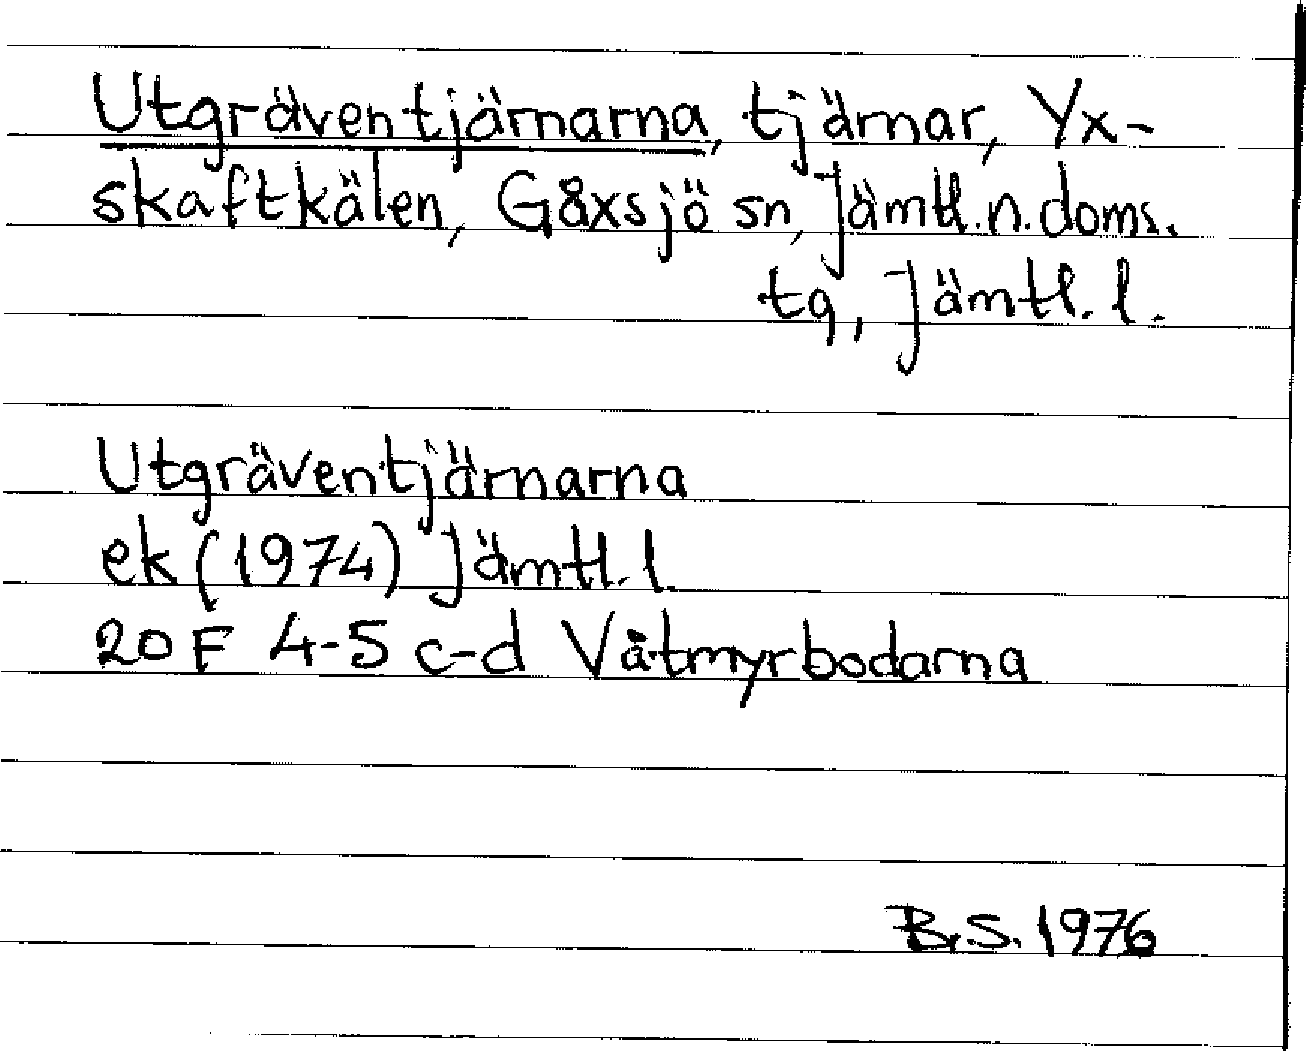 Utgräventjärnarna, tjärnar, Yx-
skaftkälen, Gåxsjö sn, Jämtl.n.doms.
tg, Jämtl.l.
Utgräventjärnarna
ek (1974) Jämtl.l.
20 F 4-5 c-d Våtmyrbodarna
Br.S. 1976